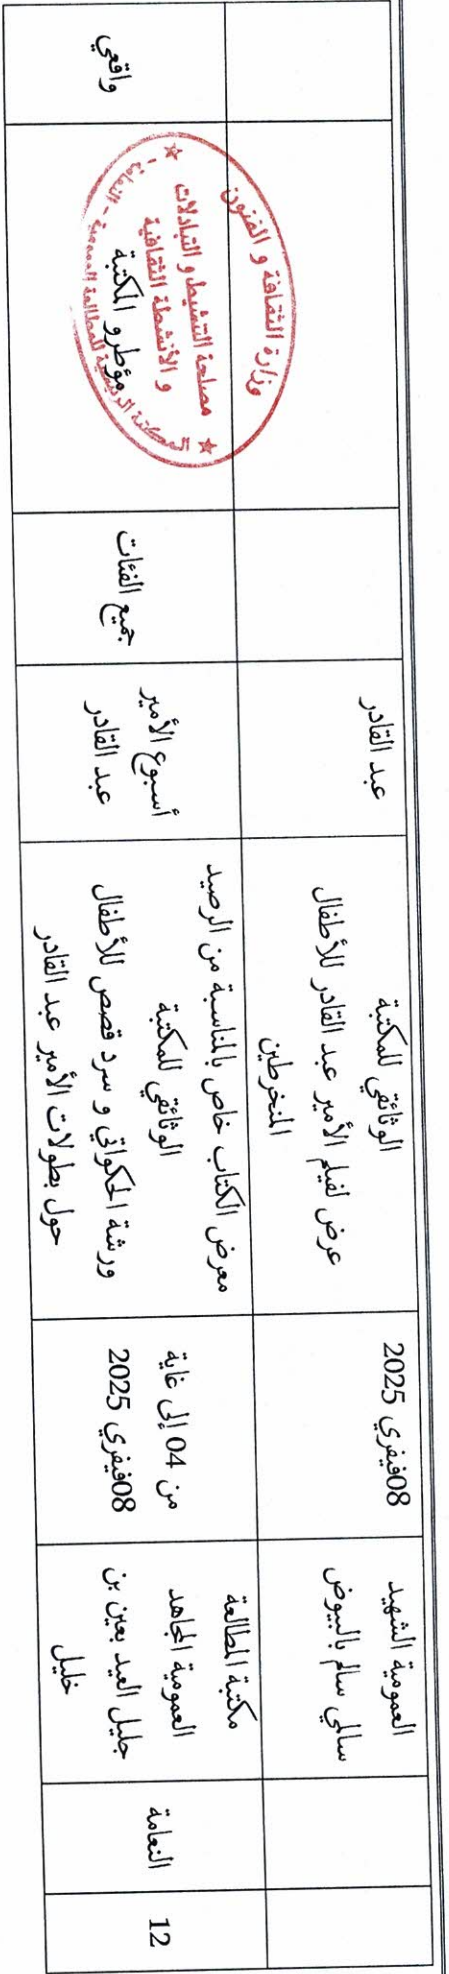 العمومية الشهيد
سالمي سالم بالبيوض
08فيفري 2025
الوثائقي للمكتبة
عرض لفيلم الأمير عبد القادر للأطفال
المنخرطين
عبد القادر
12
النعامة
مكتبة المطالعة
العمومية المجاهد
جليل العيد بعين بن
خليل
من 04 إلى غاية
08فيفري 2025
معرض الكتاب خاص بالمناسبة من الرصيد
الوثائقي للمكتبة
ورشة الحكواتي و سرد قصص للأطفال
حول بطولات الأمير عبد القادر
أسبوع الأمير
عبد القادر
جميع الفئات
مؤطرو المكتبة
واقعي
وزارة الثقافة و الفنون
مصلحة التنشيط و التبادلات
و الأنشطة الثقافية
المكتبة الرئيسية للمطالعة العمومية - النعامة -